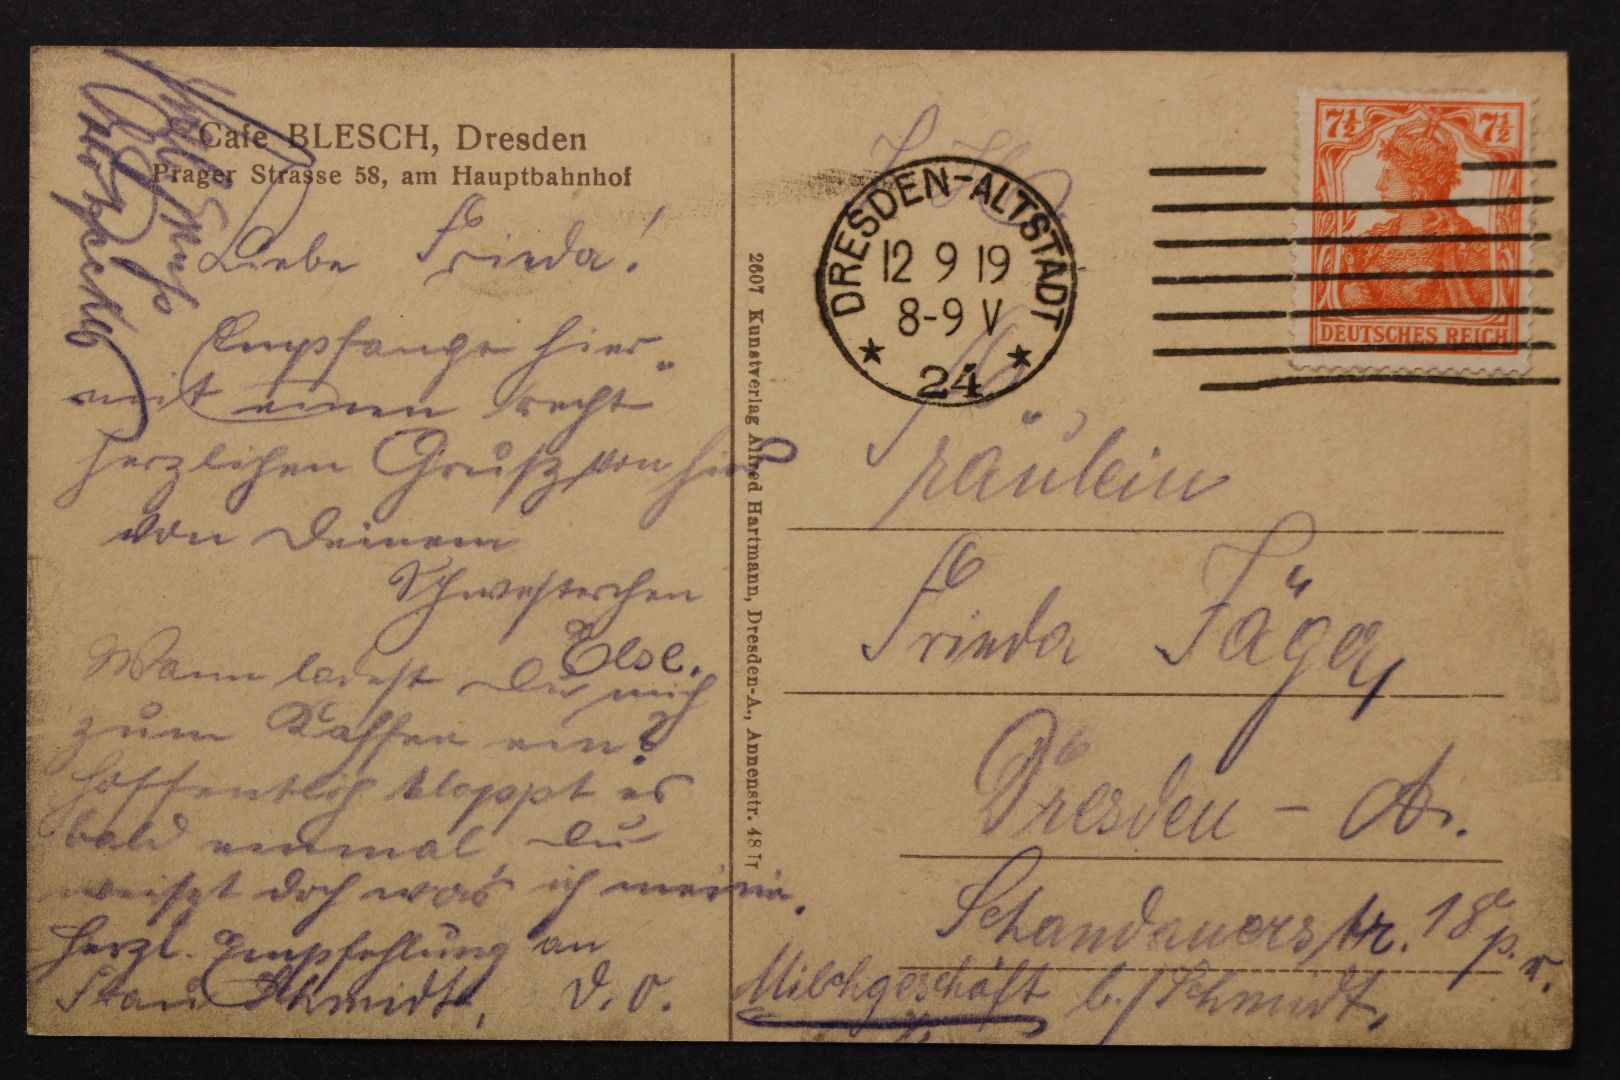 Cafe BLESCH, Dresden
Prager Strasse 58, am Hauptbahnhof
Liebe Frieda!
Empfange hier-
mit einen recht
herzlichen Gruß von hier
von Deinem
Schwesterchen
Else.
Wann ladest Du mich
zum Kaffee ein?
Hoffentlich kloppt es
bald einmal, Du
weißt doch was ich meine.
Herzl. Empfehlung an
Frau Schmidt, D. O.
Gruß
2607 Kunstverlag Alfred Hartmann, Dresden-A., Annenstr. 48 Tr
DRESDEN-ALTSTADT
12 9 19
8-9 V
* 24 *
7½ 7½
DEUTSCHES REICH
Fräulein
Frieda Jäger,
Dresden - A.
Schandauerstr. 18 p. r.
Milchgeschäft b. Schmidt,